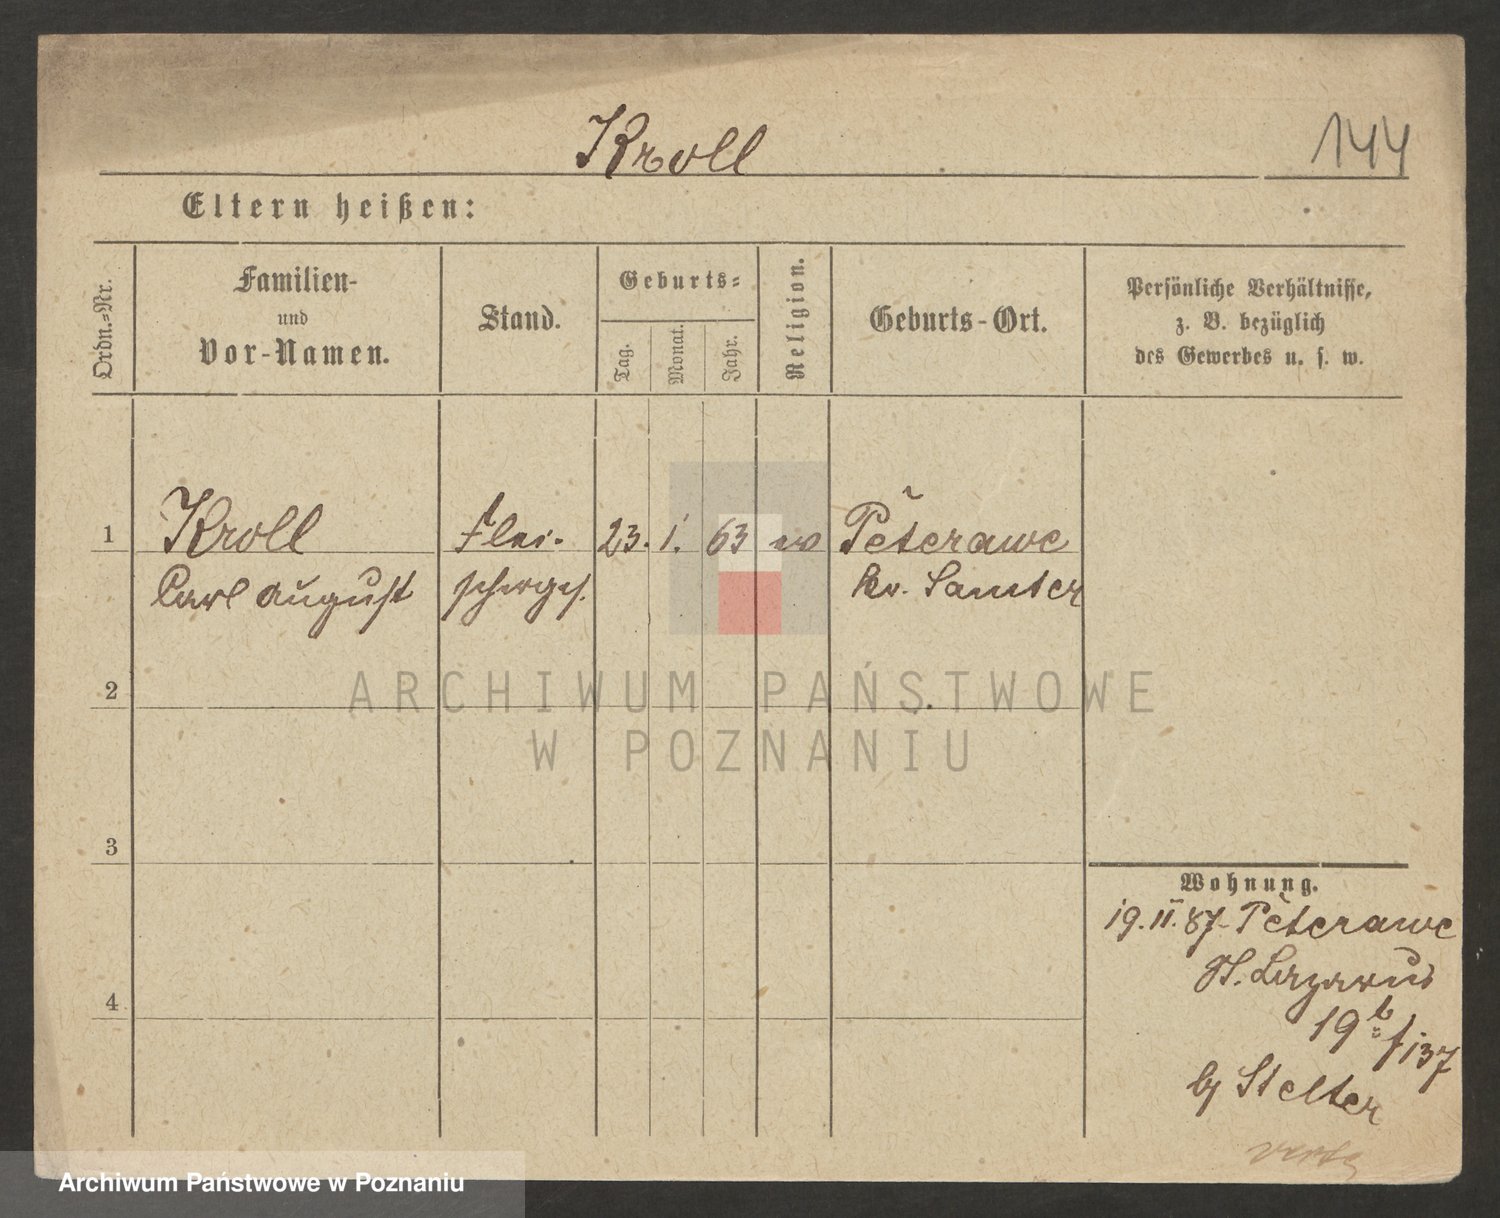 Kroll
144
Eltern heißen:
Ordn.-Nr.
Familien-
und
Vor-Namen.
Stand.
Geburts-
Tag.
Monat.
Jahr.
Religion.
Geburts-Ort.
Persönliche Verhältnisse,
z. B. bezüglich
des Gewerbes u. s. w.
1 Kroll Flei- 23. 1. 63 ev Peterawe
Carl August schergs. Kr. Samter
2
3
4
Wohnung.
19.II.87- Peterawe
St. Lazarus
19b/137
by Stelter
ARCHIWUM PAŃSTWOWE
W POZNANIU
Archiwum Państwowe w Poznaniu